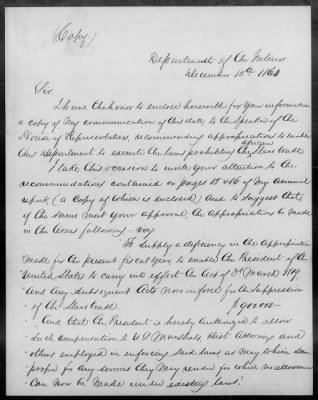 (Copy)
Department of the Interior
December 10th 1860
Sir.
I have the honor to enclose herewith for your information
a copy of my communication of this date, to the Speaker of the
House of Representatives, recommending appropriations to enable
this Department to execute the laws prohibiting the African Slave Trade.
I take this occasion to invite your attention to the
recommendations contained on pages 15 & 16 of my annual
report, (a Copy of which is enclosed) and to suggest that
if the same meet your approval, the appropriations be made
in the terms following - viz
To Supply a deficiency in the Appropriation
made for the present fiscal year to enable the President of the
United States to carry into effect the Act of 3d March 1819
And any subsequent Acts now in force for the suppression
of the Slave Trade
And that the President is hereby authorized to allow
such Compensation to U.S. Marshals, Dist. Attorneys and
others employed in enforcing said laws as may to him seem
proper for any services they may render for which no allowance
can now be made under existing laws."